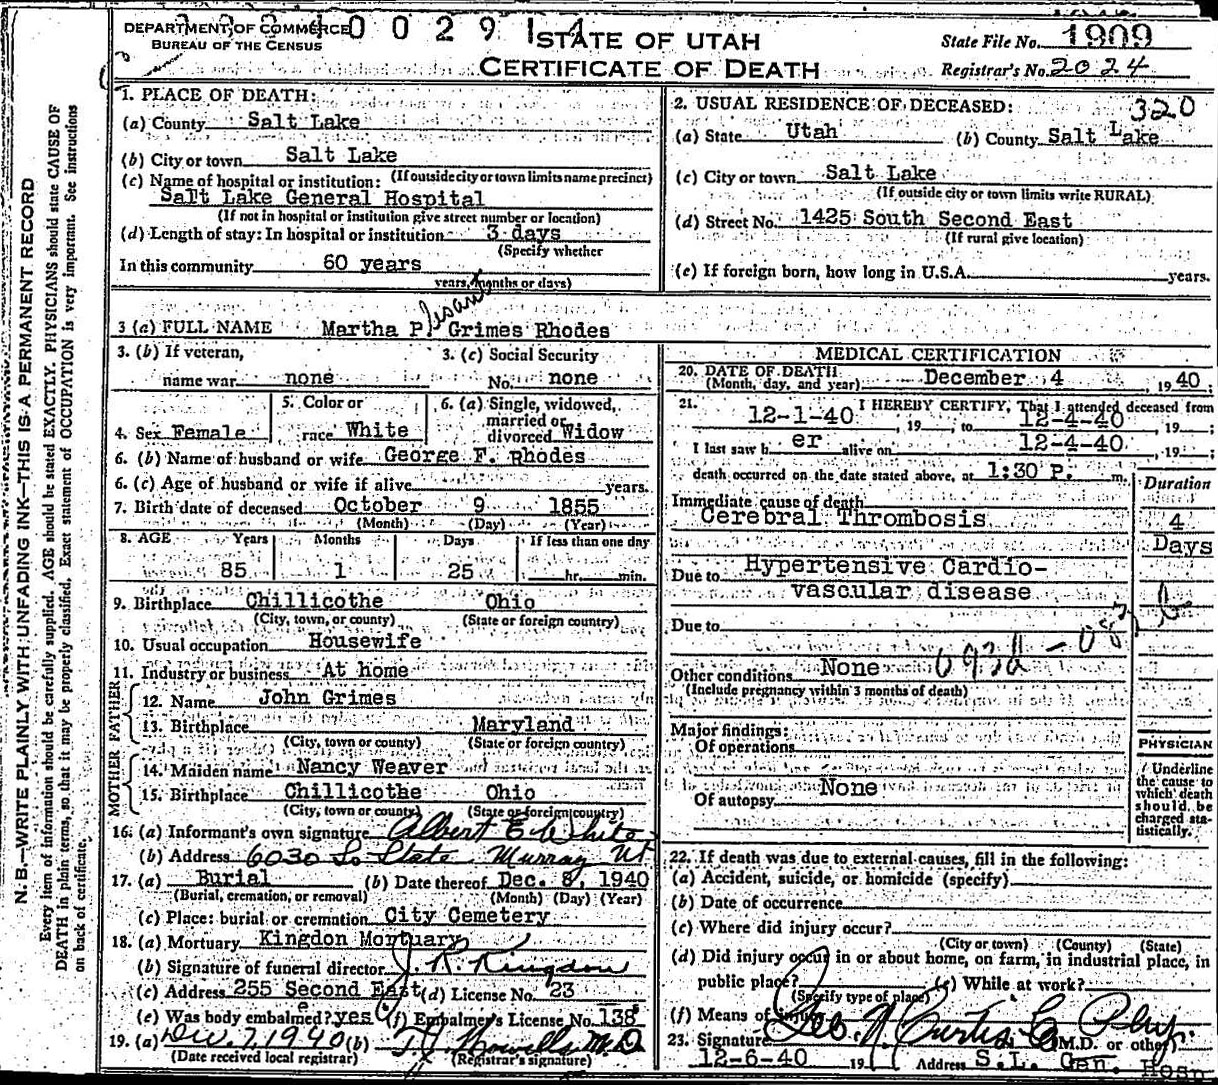 DEPARTMENT OF COMMERCE
BUREAU OF THE CENSUS
STATE OF UTAH
CERTIFICATE OF DEATH
State File No. 1909
Registrar's No. 2024
1. PLACE OF DEATH:
(a) County Salt Lake
(b) City or town Salt Lake
(If outside city or town limits name precinct)
(c) Name of hospital or institution:
Salt Lake General Hospital
(If not in hospital or institution give street number or location)
(d) Length of stay: In hospital or institution 3 days
(Specify whether
In this community 60 years
years, months or days)
2. USUAL RESIDENCE OF DECEASED: 320
(a) State Utah (b) County Salt Lake
(c) City or town Salt Lake
(If outside city or town limits write RURAL)
(d) Street No. 1425 South Second East
(If rural give location)
(e) If foreign born, how long in U.S.A. years.
3 (a) FULL NAME Martha P. Grimes Rhodes
3. (b) If veteran,
name war none
3. (c) Social Security
No. none
4. Sex Female
5. Color or
race White
6. (a) Single, widowed,
married or
divorced Widow
6. (b) Name of husband or wife George F. Rhodes
6. (c) Age of husband or wife if alive years.
7. Birth date of deceased October 9 1855
(Month) (Day) (Year)
8. AGE Years Months Days If less than one day
85 1 25 hr. min.
9. Birthplace Chillicothe Ohio
(City, town, or county) (State or foreign country)
10. Usual occupation Housewife
11. Industry or business At home
FATHER
12. Name John Grimes
13. Birthplace Maryland
(City, town or county) (State or foreign country)
MOTHER
14. Maiden name Nancy Weaver
15. Birthplace Chillicothe Ohio
(City, town or county) (State or foreign country)
16. (a) Informant's own signature Albert E White
(b) Address 6030 So State Murray Ut
17. (a) Burial (b) Date thereof Dec. 8, 1940
(Burial, cremation, or removal) (Month) (Day) (Year)
(c) Place: burial or cremation City Cemetery
18. (a) Mortuary Kingdon Mortuary
(b) Signature of funeral director J. R. Kingdon
(c) Address 255 Second East (d) License No. 23
(e) Was body embalmed? yes (f) Embalmer's License No. 138
19. (a) Dec. 7, 1940 (b) M.D.
(Date received local registrar) (Registrar's signature)
MEDICAL CERTIFICATION
20. DATE OF DEATH
(Month, day, and year) December 4, 1940;
21. I HEREBY CERTIFY, That I attended deceased from
12-1-40, 19 , to 12-4-40, 19 ;
I last saw her alive on 12-4-40, 19 ;
death occurred on the date stated above, at 1:30 P. m.
Duration
Immediate cause of death
Cerebral Thrombosis 4
Days
Due to Hypertensive Cardio-
vascular disease
Due to
Other conditions None
(Include pregnancy within 3 months of death)
Major findings:
Of operations
Of autopsy None
PHYSICIAN
Underline
the cause to
which death
should be
charged sta-
tistically.
22. If death was due to external causes, fill in the following:
(a) Accident, suicide, or homicide (specify)
(b) Date of occurrence
(c) Where did injury occur?
(City or town) (County) (State)
(d) Did injury occur in or about home, on farm, in industrial place, in
public place? (e) While at work?
(Specify type of place)
(f) Means of injury
23. Signature Geo. N. Curtis Co Phy. M.D. or other)
12-6-40 19 Address S.L. Gen. Hosp
N. B.—WRITE PLAINLY WITH UNFADING INK—THIS IS A PERMANENT RECORD
Every item of information should be carefully supplied. AGE should be stated EXACTLY. PHYSICIANS should state CAUSE OF
DEATH in plain terms, so that it may be properly classified. Exact statement of OCCUPATION is very important. See instructions
on back of certificate.